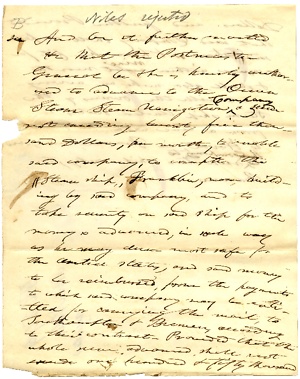 B
Niles rejected
Sec And be it further enacted
that the Postmaster
General be & he is hereby author
ized to advance to the Ocean
Steam Navigation Company
not exceeding twenty five thou
sand Dollars, per month, to enable
said company, to complete the
"Steam ship, Franklin, now build
ing by said company, and to
take security on said ship for the
money so advanced, in such way
as he may deem most safe for
the United States, and said money
to be reimbursed, from the payments
to which said company may be enti
tled for carrying the mail, to
Southampton & Bremen, according
to their contract. Provided that the
whole sum advanced shall not
exceed one hundred & fifty thousand